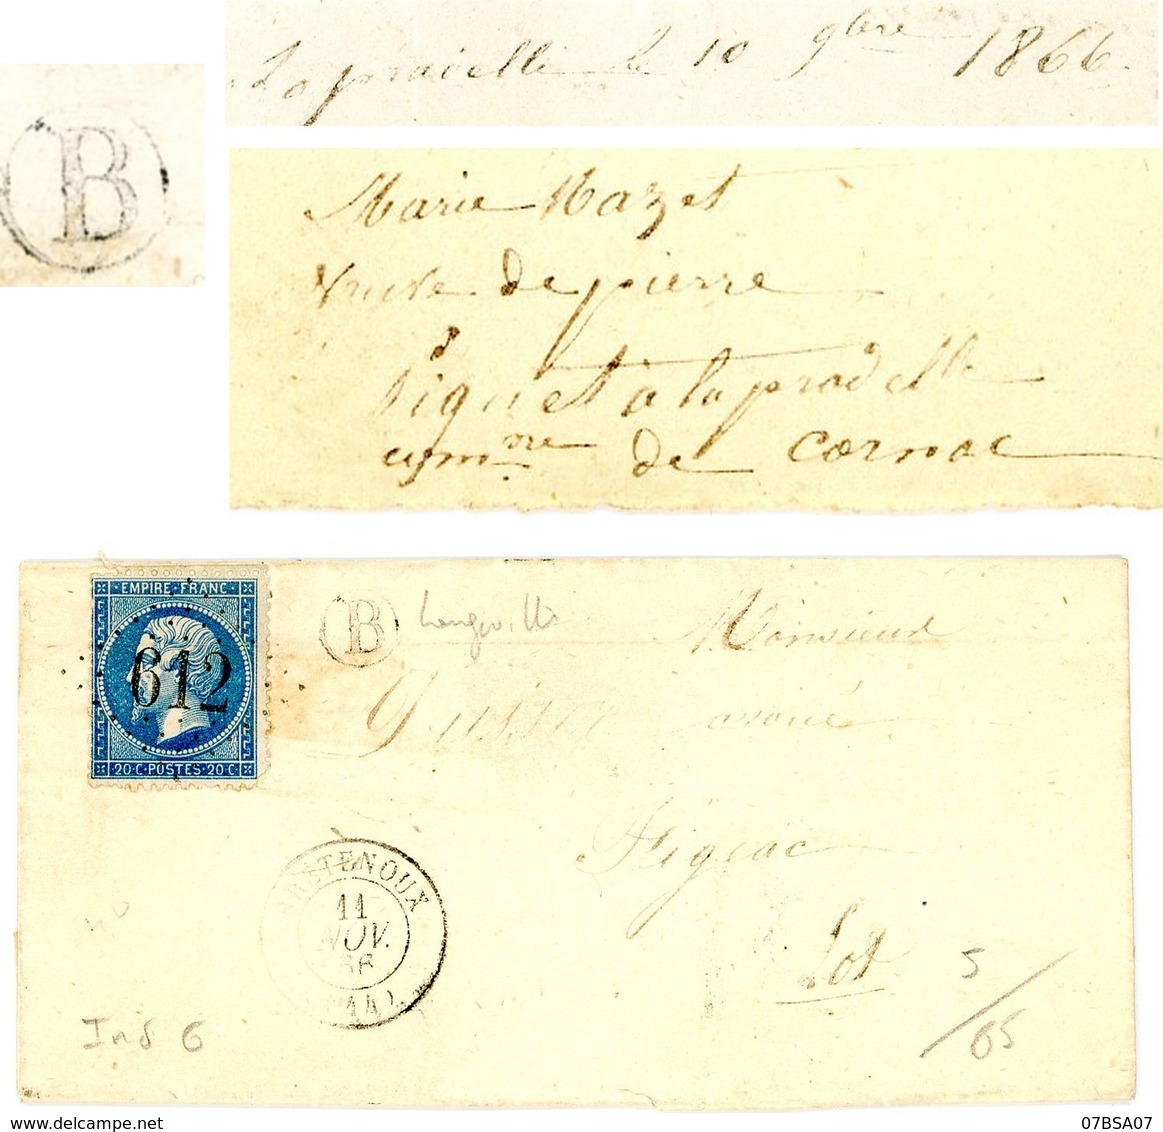 Lapradelle le 10 9bre 1866.
B
Marie Mazet
veuve de pierre
piguet à la pradelle
comme de Cornac
EMPIRE·FRANC
612
20·C·POSTES·20·C
B
Longeville
Monsieur
avoué
Figeac
Lot
BRETENOUX
11
NOV.
66
5
65
Ind 6
delcampe.net
07BSA07